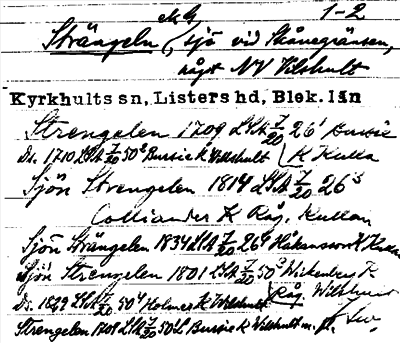 1-2
Strängeln, sjö vid Skånegränsen,
något NV Vilshult
Kyrkhults sn, Listers hd, Blek. län
Strengelen 1709 LSA 7/20 26¹ Bussie
Ds. 1710 LSA 7/20 50² Bussie K Vilshult / K Kulla
Sjön Strengelen 1814 LSA 7/20 26³
Colliander K Råg. Kullan
Sjön Strängelen 1834 LSA 7/20 26⁴ Håkansson K
Sjön Strengelen 1801 LSA 7/20 50³ Wickenberg K
Råg. Wilshult
Ds. 1849 LSA 7/20 50⁴ Holmer K Vilshult
Strengelen 1708 LSA 7/20 50 Bussie K Vilshult m. fl.